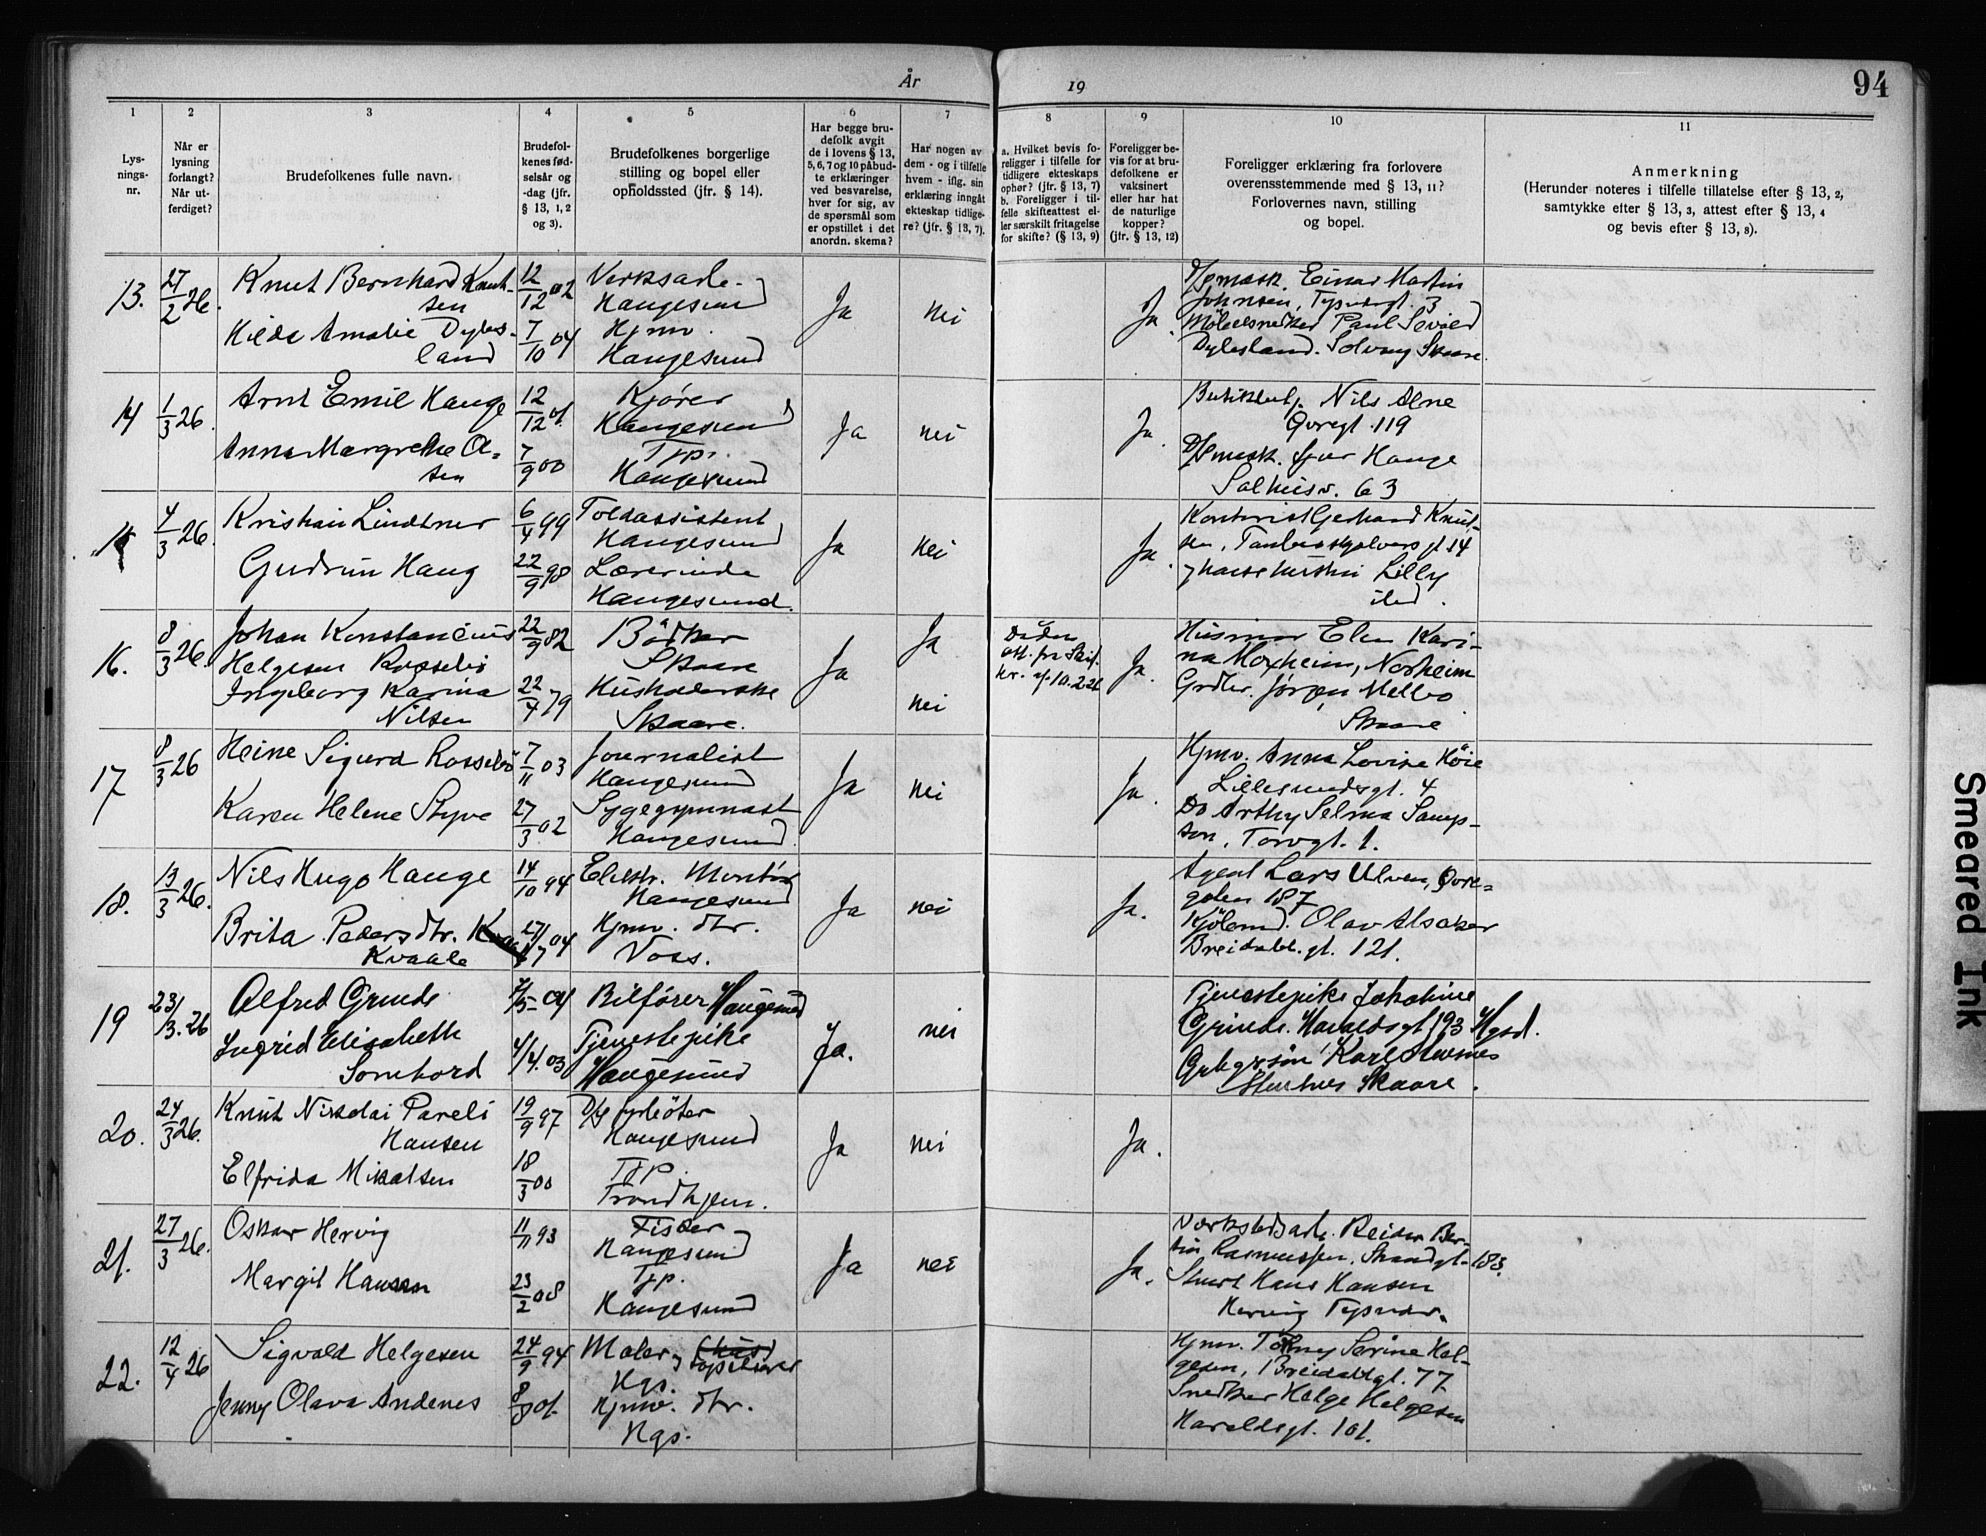 År 19
94
1
2
3
4
5
6
7
8
9
10
11
Lys-
nings-
nr.
Når er
lysning
forlangt?
Når ut-
ferdiget?
Brudefolkenes fulle navn.
Brudefol-
kenes fød-
selsår og
-dag (jfr.
§ 13, 1, 2
og 3).
Brudefolkenes borgerlige
stilling og bopel eller
opholdssted (jfr. § 14).
Har begge bru-
defolk avgit
de i lovens § 13,
5, 6, 7 og 10 påbud-
te erklæringer
ved besvarelse,
hver for sig, av
de spørsmål som
er opstillet i det
anordn. skema?
Har nogen av
dem - og i tilfelle
hvem - iflg. sin
erklæring inngåt
ekteskap tidlige-
re? (jfr. § 13, 7).
a. Hvilket bevis fo-
religger i tilfelle for
tidligere ekteskaps
ophør? (jfr. § 13, 7)
b. Foreligger i til-
felle skifteattest el-
ler særskilt fritagelse
for skifte? (§ 13, 9)
Foreligger be-
vis for at bru-
defolkene er
vaksinert
eller har hat
de naturlige
kopper?
(jfr. § 13, 12)
Foreligger erklæring fra forlovere
overensstemmende med § 13, 11?
Forlovernes navn, stilling
og bopel.
Anmerkning
(Herunder noteres i tilfelle tillatelse efter § 13, 2,
samtykke efter § 13, 3, attest efter § 13, 4
og bevis efter § 13, 8).
13. 27/2 26. Knut Bernhard Knut- 12/12 02 Verksarb. Ja nei Ja. Einar Martin
sen Haugesund Johnsen, Typedalsgt. 3
Hilda Amalie Dybes- 7/10 04 Hjmv. Møbelsnedker Paul Sevald
land Haugesund Dybesland. Solvang Skaare.
14 1/3 26. Arnt Emil Hauge 12/12 01. Kjører Ja nei Ja. Nils Alne
Haugesund Øvregt. 119
Anna Margrethe Ol- 7/9 00 Tjp. D/Smask. Hauge
sen Haugesund Salhusv. 63
15 4/3 26. Kristian Lindtner 6/4 99 Toldassistent Ja nei Ja. Kontorist Gerhard Knut-
Haugesund sen, gt 14
Gudrun Haug 22/9 98 Lærerinde Lilly
Haugesund. ibd.
16. 8/3 26. Johan Konstancius 22/9 82 Bödker Ja Ja Ja. Husmor Elen Kari-
Helgesen Rosselö Skaare na Moxheim, Norheim
Ingeborg Karina 22/4 79 Husholderske nei Grdbr. Jørgen Melbo
Nilsen Skaare. Skaare
17 8/3 26 Heine Sigurd Rosselö 7/11 03 Journalist Ja nei Ja. Hjmv. Anna Lovise Höie
Haugesund Lillesundsgt. 4
Karen Helene Styve 27/3 02 Sygegymnast Do Arthy Selma Samp-
Haugesund. son, Torvgt. 1.
18. 13/3 26. Nils Hugo Hauge 14/10 94 Elektr. Montör Ja nei Ja. Agent Lars Ulven, Øvre-
Haugesund gaten 187
Brita Pedersdtr. 27/7 04 Hjmv. dtr. Kjöbmd. Olav Alsaker
Kvaale Voss. Breidabl.gt. 121.
19 23/3. 26 Alfred Grinde 7/5-04 Bilfører Haugesund Ja. nei Tjenestepike Johahine
Ingrid Elisabeth 4/4.03 Tjenestepike Grinde. Haraldsgt 193 Hgsd.
Sombord Haugesund Karl
Skaare.
20. 24/3 26. Knut Nikolai Pareli 19/9 97 D/S fyrböter Ja nei Ja.
Hansen Haugesund
Elfrida Mikalsen 18/3 00 Tjp.
Trondhjem.
21. 27/3 26. Oskar Hervig 11/11 93 Fisker Ja nei Ja. Verkstedsarb. Reidar Ber-
Haugesund tin Rasmussen, Strandgt. 183.
Margit Hansen 23/2 08 Tjp. Stuert Hans Hansen
Haugesund Hervig Tysvær.
22. 12/4 26 Sigvald Helgesen 24/9 94 Maler, tapetserer Hjmv. Tomy Serine Hel-
Hgs. gesen, Breidablgt. 77
Jenny Olava Andenes 8/8 01. Hjmv. dtr. Snedker Helge Helgesen
Hgs. Haraldsgt. 101.
Smeared Ink